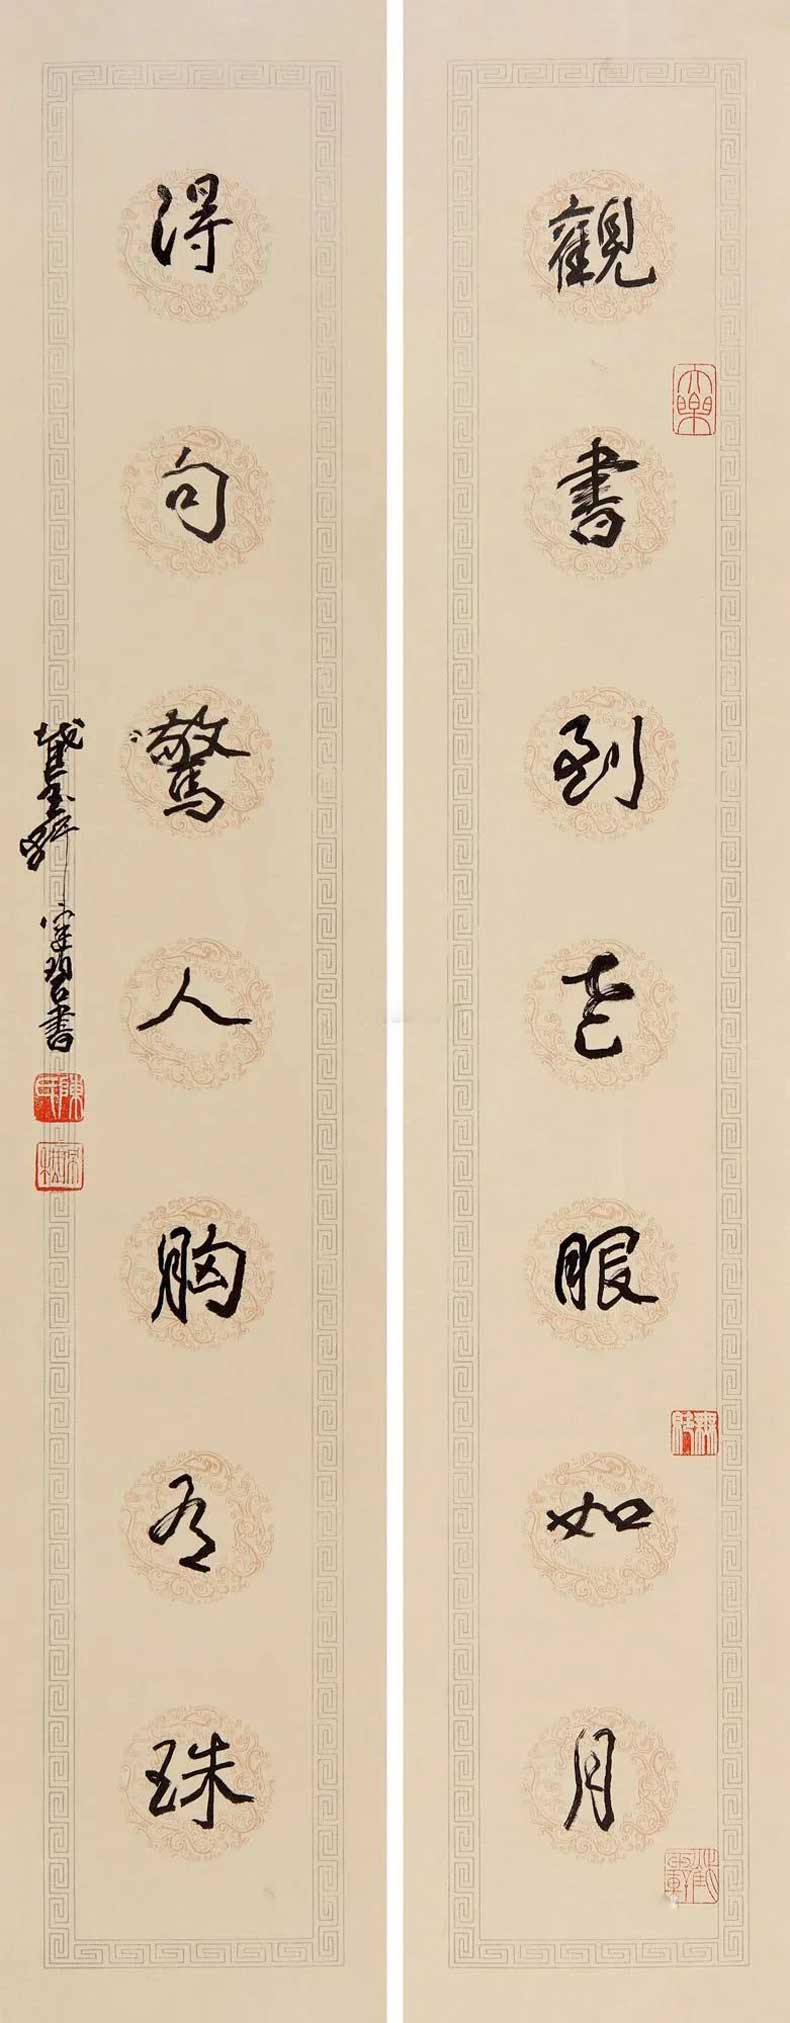 觀書到老眼如月
得句驚人胸有珠